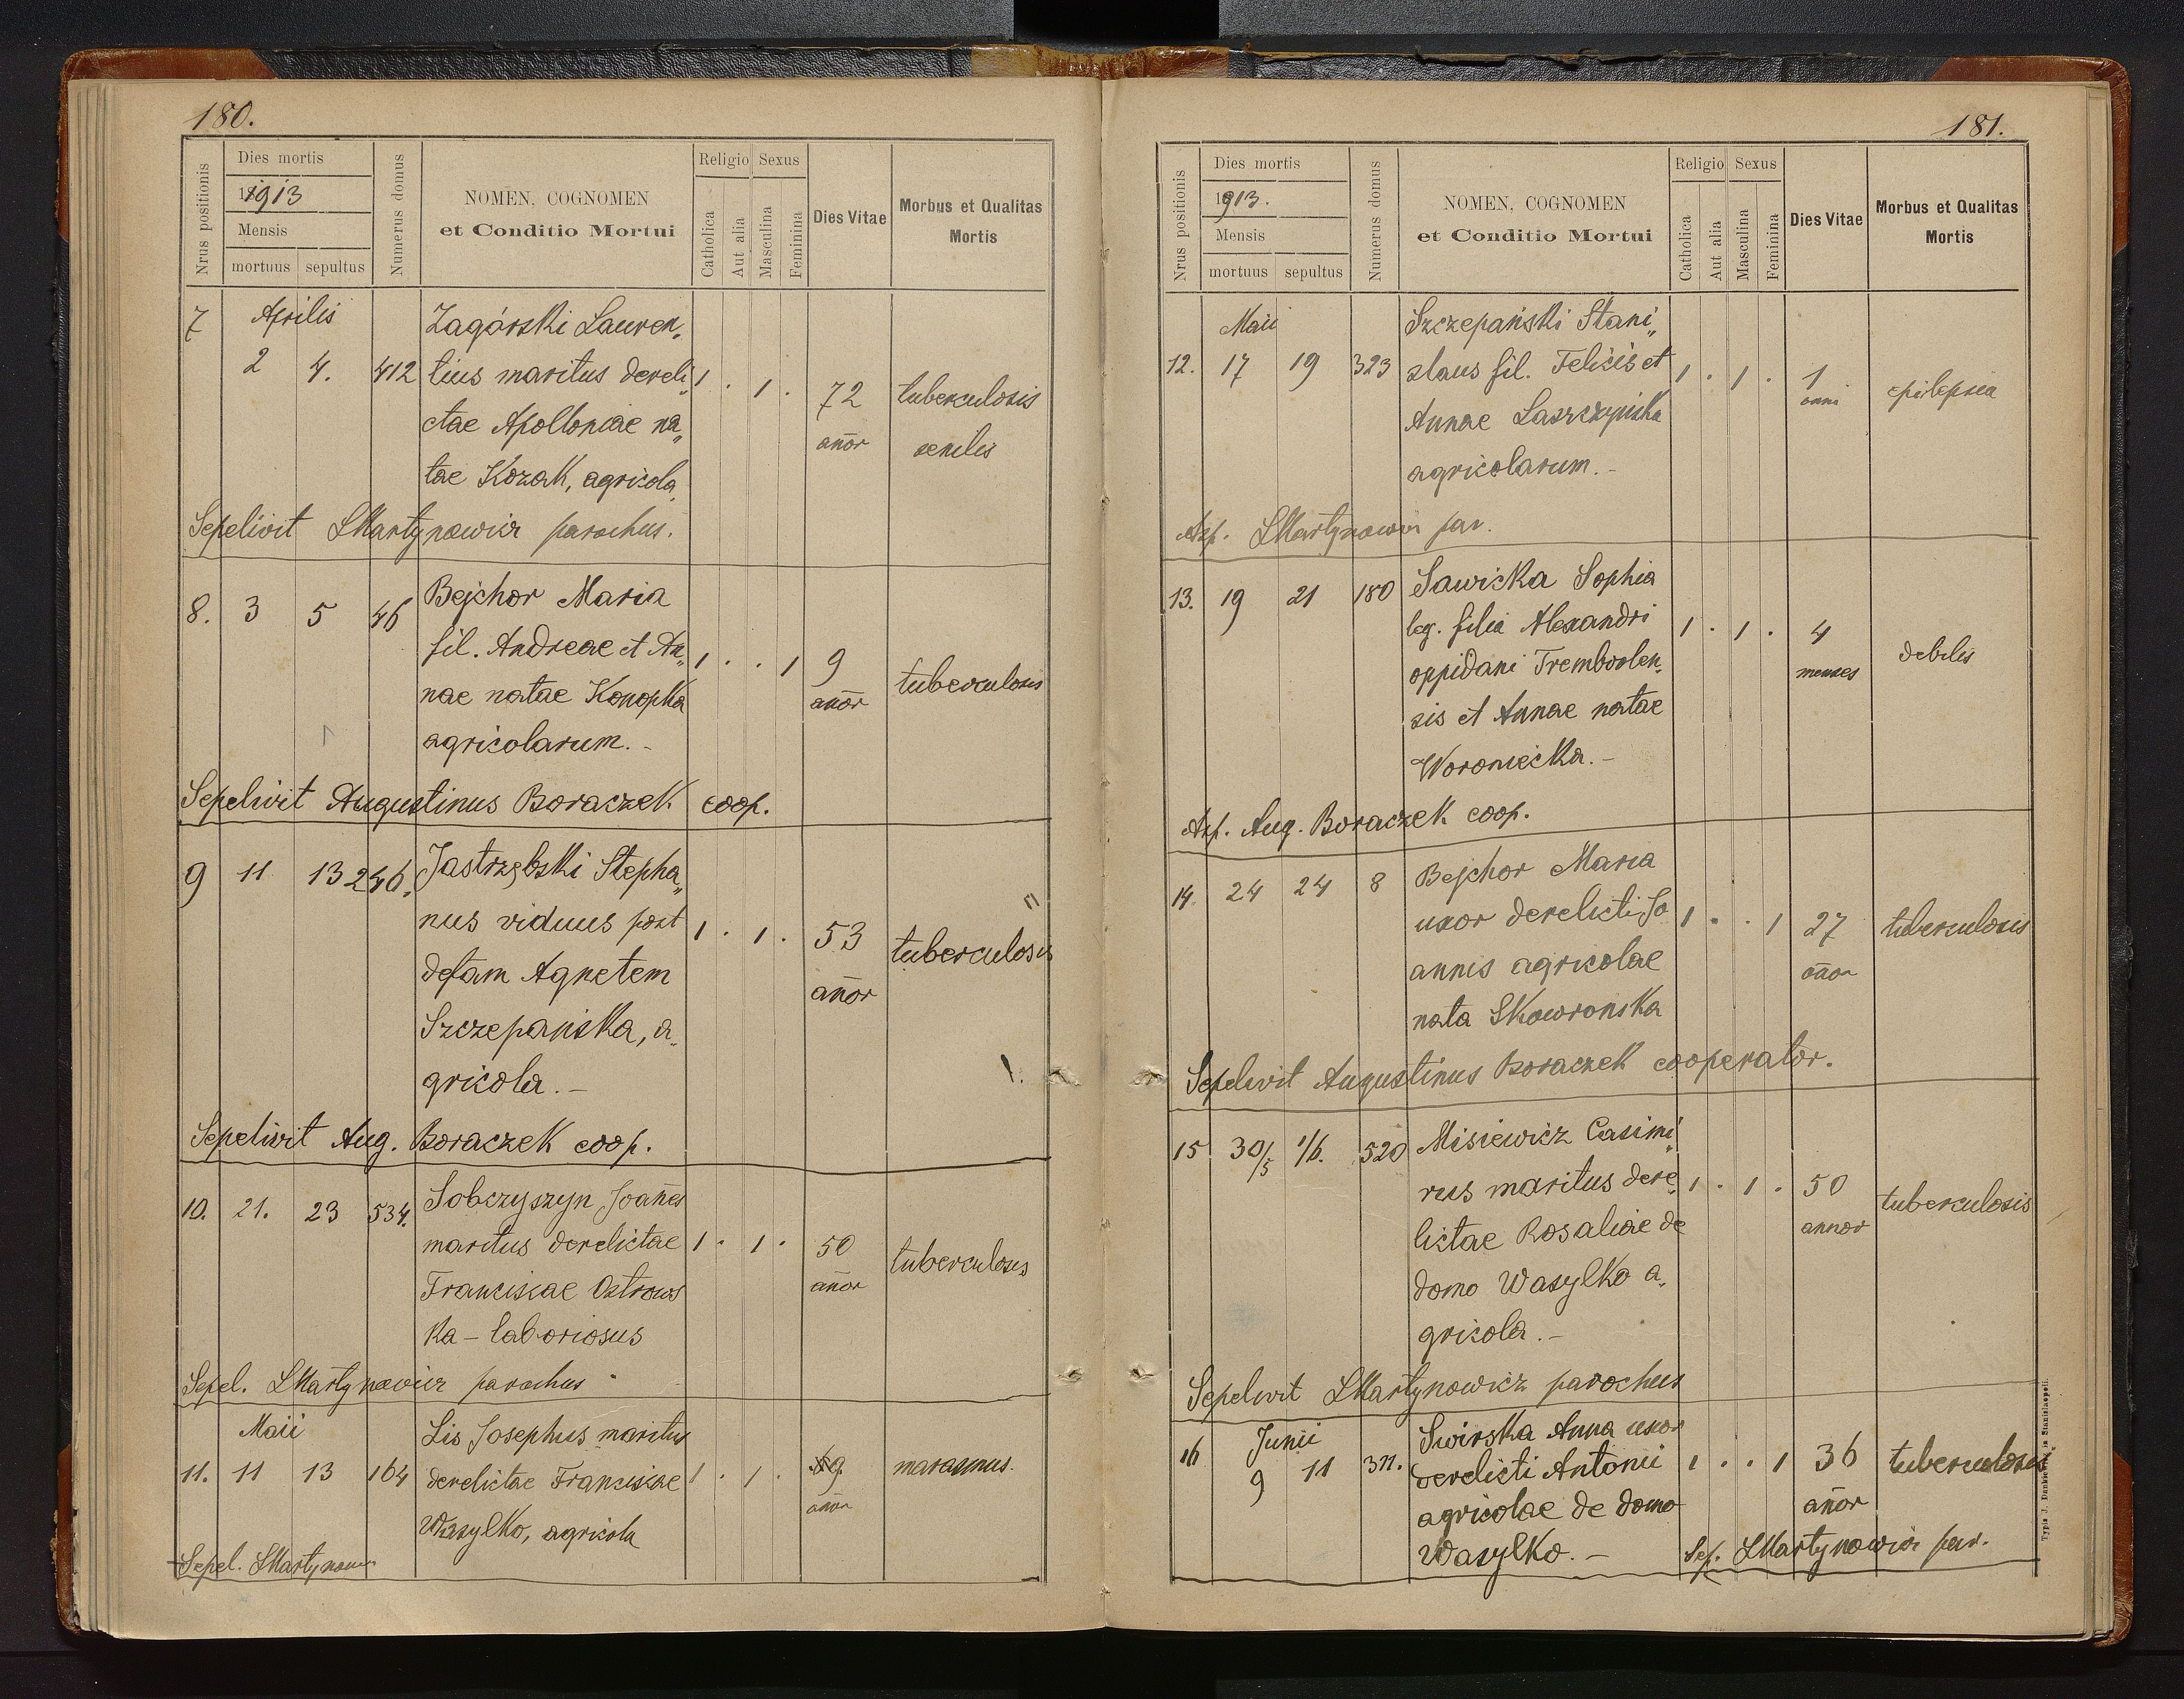 180.
Nrus positionis
Dies mortis
1913
Mensis
mortuus sepultus
Numerus domus
NOMEN, COGNOMEN
et Conditio Mortui
Religio Sexus
Catholica
Aut alia
Masculina
Feminina
Dies Vitae
Morbus et Qualitas
Mortis
7 Aprilis Zagórski Lauren„
2 4. 412 tius maritus dereli„ 1 . 1 . 72 tuberculosis
ctae Apolloniae na„ añor senilis
tae Kozak, agricola
Sepelivit LMartynowicz parochus.
8. 3 5 46 Bejchor Maria
fil. Andreae et An„ 1 . . 1 9 tuberculosis
nae natae Konopka añor
agricolarum. -
Sepelivit Augustinus Boraczek coop.
9 11 13 246. Jastrzębski Stepha„
nus viduus post 1 . 1 . 53 tuberculosis
defam Agnetem añor
Szczepańska, a„
gricola. -
Sepelivit Aug. Boraczek coop.
10. 21. 23 534. Sobczyszyn Joañes
maritus derelictae 1 . 1 . 50 tuberculosis
Franciscae Ostrows añor
ka - laboriosus
Sepel. LMartynowicz parochus
Maii Lis Josephus maritus
11. 11 13 164 derelictae Franciscae 1 . 1 . marasmus.
Wasylko, agricola añor
Sepel. LMartynow
181.
Nrus positionis
Dies mortis
1913.
Mensis
mortuus sepultus
Numerus domus
NOMEN, COGNOMEN
et Conditio Mortui
Religio Sexus
Catholica
Aut alia
Masculina
Feminina
Dies Vitae
Morbus et Qualitas
Mortis
Maii Szczepański Stani„
12. 17 19 323 slaus fil. Felicis et 1 . 1 . 1 epilepsia
Annae anni
agricolarum. -
Asp. LMartynowicz par.
13. 19 21 180 Sawicka Sophia
leg. filia Alexandri 1 . 1 . 4 debilis
oppidani Trembovlen„ menses
sis et Annae natae
Woroniecka. -
Asp. Aug. Boraczek coop.
14. 24 24 8 Bejchor Maria
uxor derelicti Jo 1 . . 1 27 tuberculosis
annis agricolae añor
nata Skowronska
Sepelivit Augustinus Boraczek cooperator.
15 30/5 1/6. 520 Misiewicz Casimi„
rus maritus dere„ 1 . 1 . 50 tuberculosis
lictae Rosaliae de annor
domo Wasylko a„
gricola. -
Sepelivit LMartynowicz parochus
16 Junii Swirska Anna uxor
9 11 371. derelicti Antonii 1 . . 1 36 tuberculosis
agricolae de domo añor
Wasylko. - Sep. LMartynowicz par.